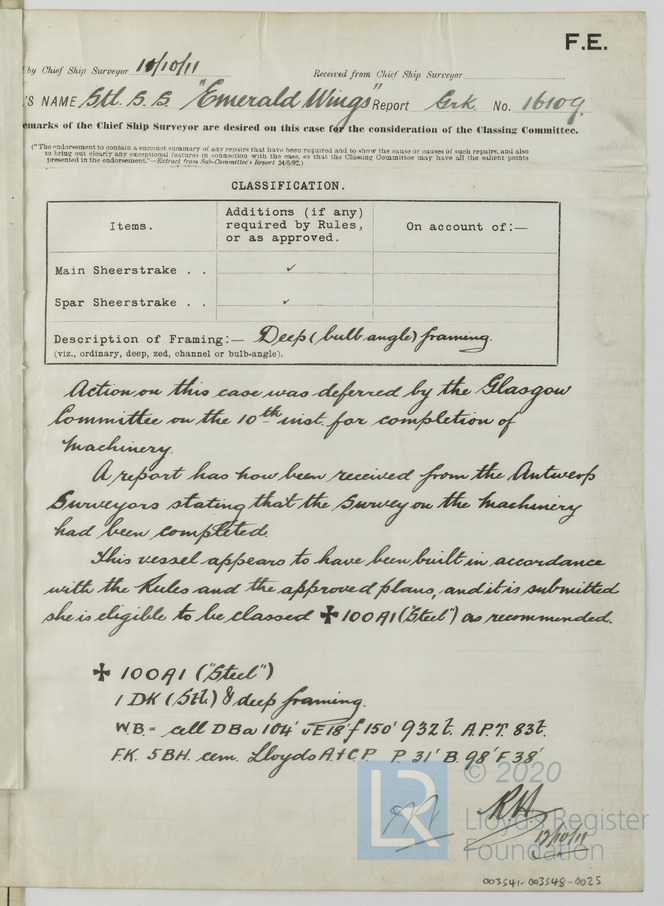 F.E.
by Chief Ship Surveyor 10/10/11 Received from Chief Ship Surveyor
'S NAME Stl. S. S. "Emerald Wings" Report Grk. No. 16109.
emarks of the Chief Ship Surveyor are desired on this case for the consideration of the Classing Committee.
("The endorsement to contain a succinct summary of any repairs that have been required and to show the cause or causes of such repairs, and also
to bring out clearly any exceptional features in connection with the case, so that the Classing Committee may have all the salient points
presented in the endorsement."—Extract from Sub-Committee's Report 24/5/92.)
CLASSIFICATION.
Items. Additions (if any) required by Rules, or as approved. On account of:—
Main Sheerstrake . . ✓
Spar Sheerstrake . . ✓
Description of Framing:— Deep (bulb angle) framing.
(viz., ordinary, deep, zed, channel or bulb-angle).
Action on this case was deferred by the Glasgow
Committee on the 10th inst. for completion of
Machinery.
A report has now been received from the Antwerp
Surveyors stating that the Survey on the Machinery
had been completed.
This vessel appears to have been built in accordance
with the Rules and the approved plans, and it is submitted
she is eligible to be classed ✠ 100A1 ("Steel") as recommended.
✠ 100A1 ("Steel")
1 DK (Stl.) & deep framing.
W.B.= cell DBa 104' uE18' f 150' 932t. A.P.T. 83t.
F.K. 5BH. cem. Lloyds A+C.P. P. 31' B. 98' F. 38'
RH
12/10/11
LR © 2020
Lloyd's Register
Foundation
003541-003548-0025